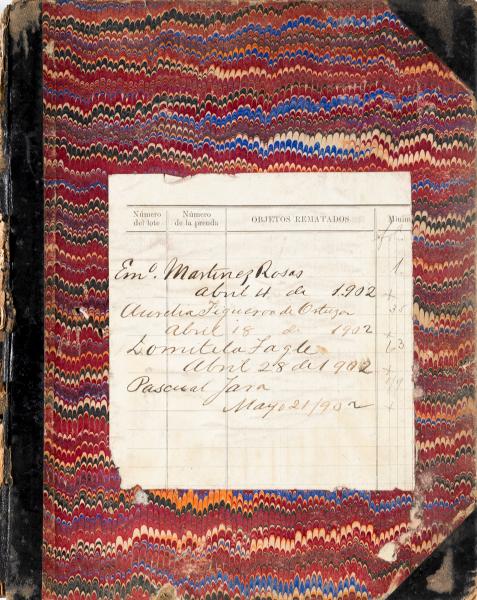 Número del lote
Número de la prenda
OBJETOS REMATADOS
Mínim
Emo. Martinez Rosas 1
abril 4 de 1.902
Aurelia Figueroa de Ortuzar 35
abril 18 de 1902
Domitila Tagle 63
abril 28 de 1902
Pascual Jara
Mayo 21/902